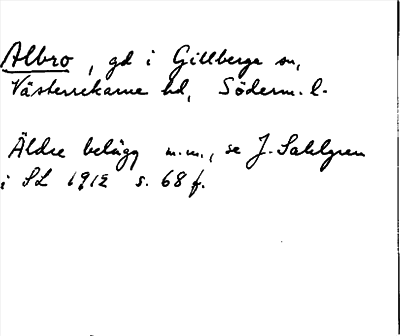 Albro, gd i Gillberga sn,
Västerrekarne hd, Söderm. l.
Äldre belägg m.m., se J. Sahlgren
i SL 1912 s. 68 f.